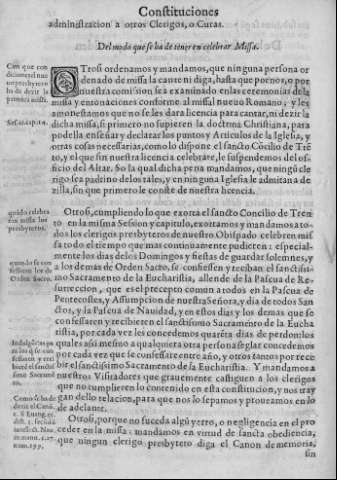 Constituciones
administracion a otros Clerigos, o Curas.
Del modo que se ha de tener en celebrar Missa.
Con que con
dicionesel nue
uo presbytero
ha de dezir la
primera missa.
OTrosi ordenamos y mandamos, que ninguna persona or
denado de missa la cante ni diga, hasta que por nos, o por
nuestra comission sea examinado enlas ceremonias dela
missa y entonaciones conforme al missal nueuo Romano, y les
amonestamos que no se les dara licencia para cantar, ni dezir la
dicha missa, si primero no supieren la doctrina Christiana, para
podella enseñar y declarar los puntos y Articulos de la Iglesia, y
otras cosas necessarias, como lo dispone el sancto Cõcilio de Trẽ
to, y el que sin nuestra licencia celebrare, le suspendemos del of-
ficio del Altar. So la qual dicha pena mandamos, que ningũ cle
rigo sea padrino delos tales, y en ninguna Iglesia le admitan a de
zilla, sin que primero le conste de nuestra licencia.
celebra
missa los
presbyteros.
Otrosi, cumpliendo lo que exorta el sancto Concilio de Tren
to en la misma Session y capitulo, exortamos y mandamos a to-
dos los clerigos presbyteros de nuestro Obispado celebren mis
sa todo el tiempo que mas continuamente pudieren: especial-
mente los dias delos Domingos y fiestas de guardar solemnes, y
a los demas de Orden Sacro, se confiessen y reciban el sanctissi-
mo Sacramento de la Eucharistia, allende de la Pascua de Re-
surreccion, que es el precepto comun a todos en la Pascua de
Pentecostes, y Assumpcion de nuestra Señora, y dia de todos San
ctos, y la Pascua de Nauidad, y en estos dias y los demas que se
confessaren y recibieren el sanctissimo Sacramẽto de la Eucha
ristia, por cada vez les concedemos quarẽta dias de perdon: los
quales assi mesmo a qualquiera otra persona seglar concedemos
por cada vez que se confessare entre año, y otros tantos por reco
bir el sanctissimo Sacramento de la Eucharistia. Y mandamos a
nuestros Visitadores que grauemente castiguen a los clerigos
que no cumplieren lo contenido en esta constitucion, y nos tray
gan dello relacion, para que nos lo sepamos y proueamos en lo
de adelante.
Orden Sacro.
Como se ha de
Otrosi, porque no suceda algũ yerro, o negligencia en el pro
ceder en la missa: mandamos en virtud de sancta obediencia,
que ningun clerigo presbytero diga el Canon de memoria,
sin